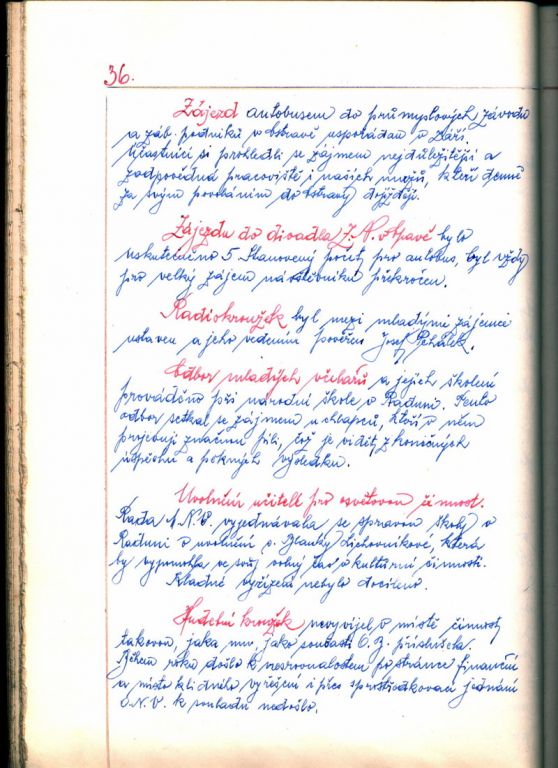 36.
Zájezd autobusem do průmyslových závodů
a záb. podniků v Ostravě uspořádán v září.
Účastníci si prohledli se zájmem nejdůležitější a
zodpovědná pracoviště i našich mužů, kteří denně
za svým povoláním do Ostravy dojíždějí.
Zájezdu do divadla Z. N. v Opavě bylo
uskutečněno 5. Stanovený počet pro autobus, byl vždy
pro velký zájem návštěvníků překročen.
Radiokroužek byl mezi mladými zájemci
ustaven a jeho vedením pověřen Josef
Odbor mladých včelařů a jejich školení
prováděno při národní škole v Raduni. Tento
odbor setkal se zájmem u chlapců, kteří v něm
projevují značnou píli, což je vidět, z konečných
úspěchů a pěkných výsledků.
Uvolnění učitelé pro osvětovou činnost.
Rada M.N.V. vyjednávala se správou školy v
Raduni o uvolnění s. Blanky Lichovníkové, která
by vypomohla ve svůj volný čas v kulturní činnosti.
Kladné vyřízení nebylo docíleno.
Hudební kroužek nevyvíjel v místě činnosti
takovou, jaka mu, jako součásti O. B. příslušela.
Během roku došlo k nesrovnalostem po stránce finanční
a místo klidného vyřešení i přes sprostředkovací jednání
O.N.V. k souhladu nedošlo.